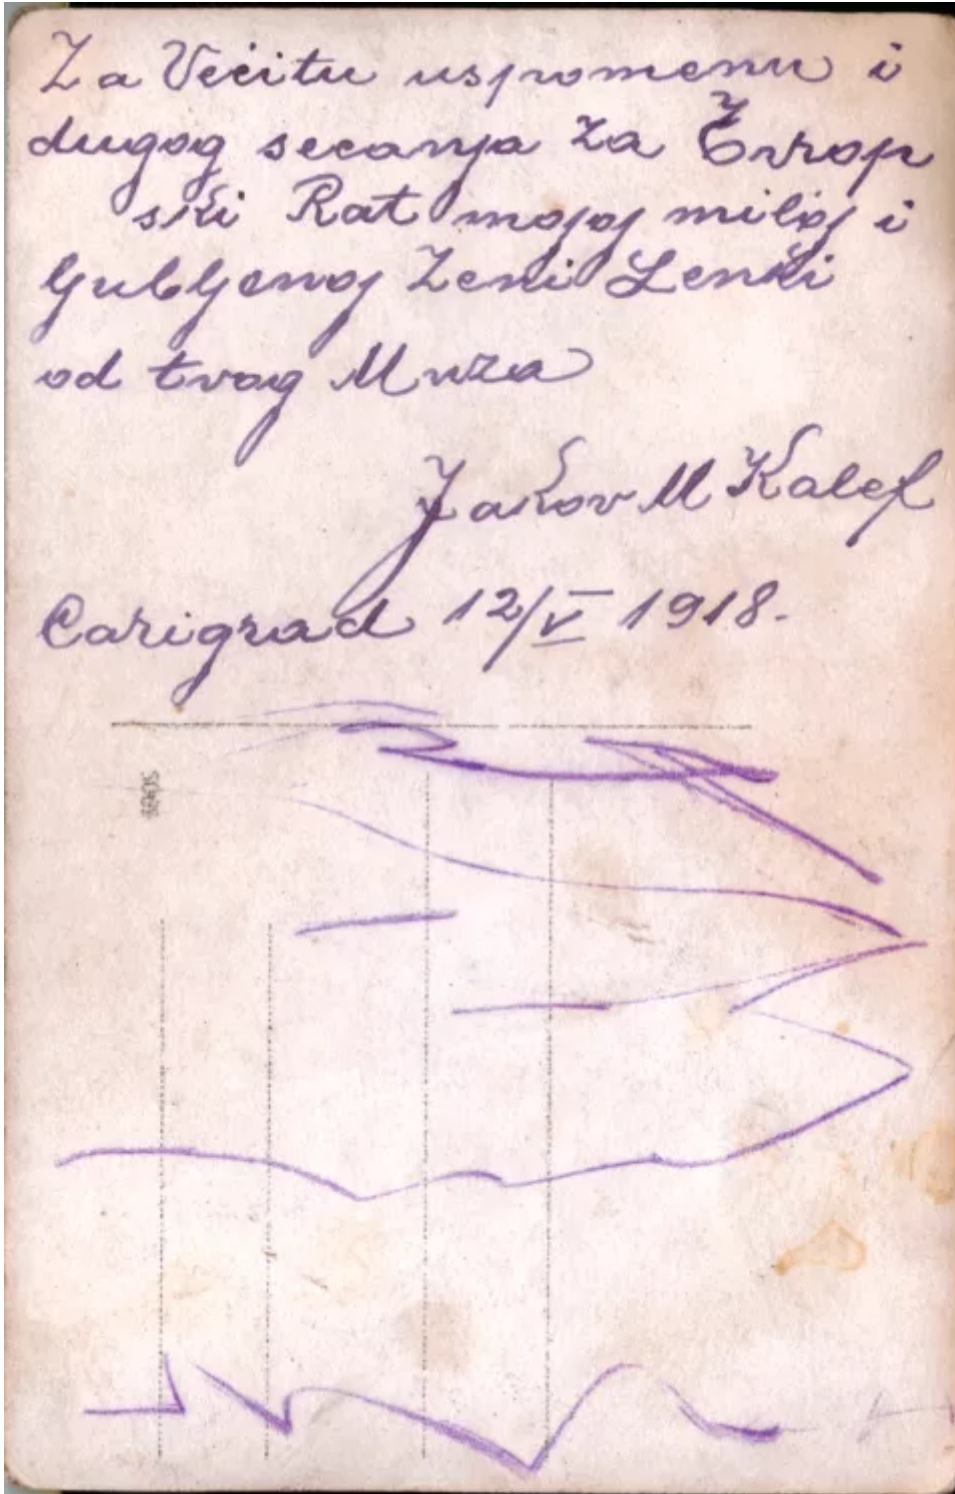 Za Večitu uspomenu i
dugog secanja za Evrop
ski Rat mojoj miloj i
ljubljenoj Zeni Lenki
od tvog Muza
Jakov M Kalef
Carigrad 12/V 1918.